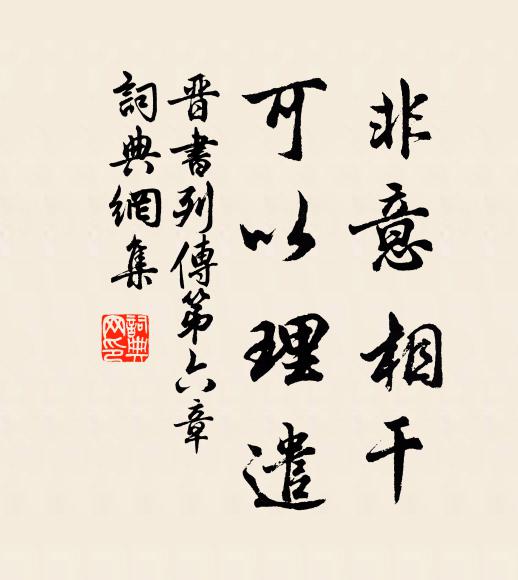 非意相干
可以理遣
晉書列傳第六章
詞典網集
詞典
网印